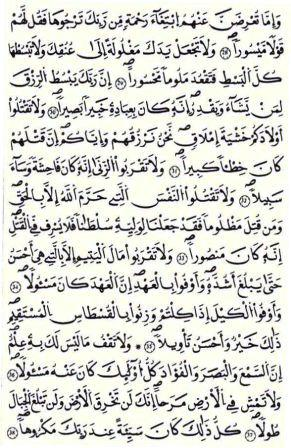 وَإِمَّا تُعْرِضَنَّ عَنْهُمُ ابْتِغَاءَ رَحْمَةٍ مِنْ رَبِّكَ تَرْجُوهَا فَقُلْ لَهُمْ
قَوْلًا مَيْسُورًا ۝ وَلَا تَجْعَلْ يَدَكَ مَغْلُولَةً إِلَىٰ عُنُقِكَ وَلَا تَبْسُطْهَا
كُلَّ الْبَسْطِ فَتَقْعُدَ مَلُومًا مَحْسُورًا ۝ إِنَّ رَبَّكَ يَبْسُطُ الرِّزْقَ
لِمَنْ يَشَاءُ وَيَقْدِرُ إِنَّهُ كَانَ بِعِبَادِهِ خَبِيرًا بَصِيرًا ۝ وَلَا تَقْتُلُوا
أَوْلَادَكُمْ خَشْيَةَ إِمْلَاقٍ نَحْنُ نَرْزُقُهُمْ وَإِيَّاكُمْ إِنَّ قَتْلَهُمْ
كَانَ خِطْئًا كَبِيرًا ۝ وَلَا تَقْرَبُوا الزِّنَىٰ إِنَّهُ كَانَ فَاحِشَةً وَسَاءَ
سَبِيلًا ۝ وَلَا تَقْتُلُوا النَّفْسَ الَّتِي حَرَّمَ اللَّهُ إِلَّا بِالْحَقِّ
وَمَنْ قُتِلَ مَظْلُومًا فَقَدْ جَعَلْنَا لِوَلِيِّهِ سُلْطَانًا فَلَا يُسْرِفْ فِي الْقَتْلِ
إِنَّهُ كَانَ مَنْصُورًا ۝ وَلَا تَقْرَبُوا مَالَ الْيَتِيمِ إِلَّا بِالَّتِي هِيَ أَحْسَنُ
حَتَّىٰ يَبْلُغَ أَشُدَّهُ وَأَوْفُوا بِالْعَهْدِ إِنَّ الْعَهْدَ كَانَ مَسْئُولًا ۝
وَأَوْفُوا الْكَيْلَ إِذَا كِلْتُمْ وَزِنُوا بِالْقُسْطَاسِ الْمُسْتَقِيمِ
ذَٰلِكَ خَيْرٌ وَأَحْسَنُ تَأْوِيلًا ۝ وَلَا تَقْفُ مَا لَيْسَ لَكَ بِهِ عِلْمٌ
إِنَّ السَّمْعَ وَالْبَصَرَ وَالْفُؤَادَ كُلُّ أُولَٰئِكَ كَانَ عَنْهُ مَسْئُولًا ۝
وَلَا تَمْشِ فِي الْأَرْضِ مَرَحًا إِنَّكَ لَنْ تَخْرِقَ الْأَرْضَ وَلَنْ تَبْلُغَ الْجِبَالَ
طُولًا ۝ كُلُّ ذَٰلِكَ كَانَ سَيِّئَةً عِنْدَ رَبِّكَ مَكْرُوهًا ۝